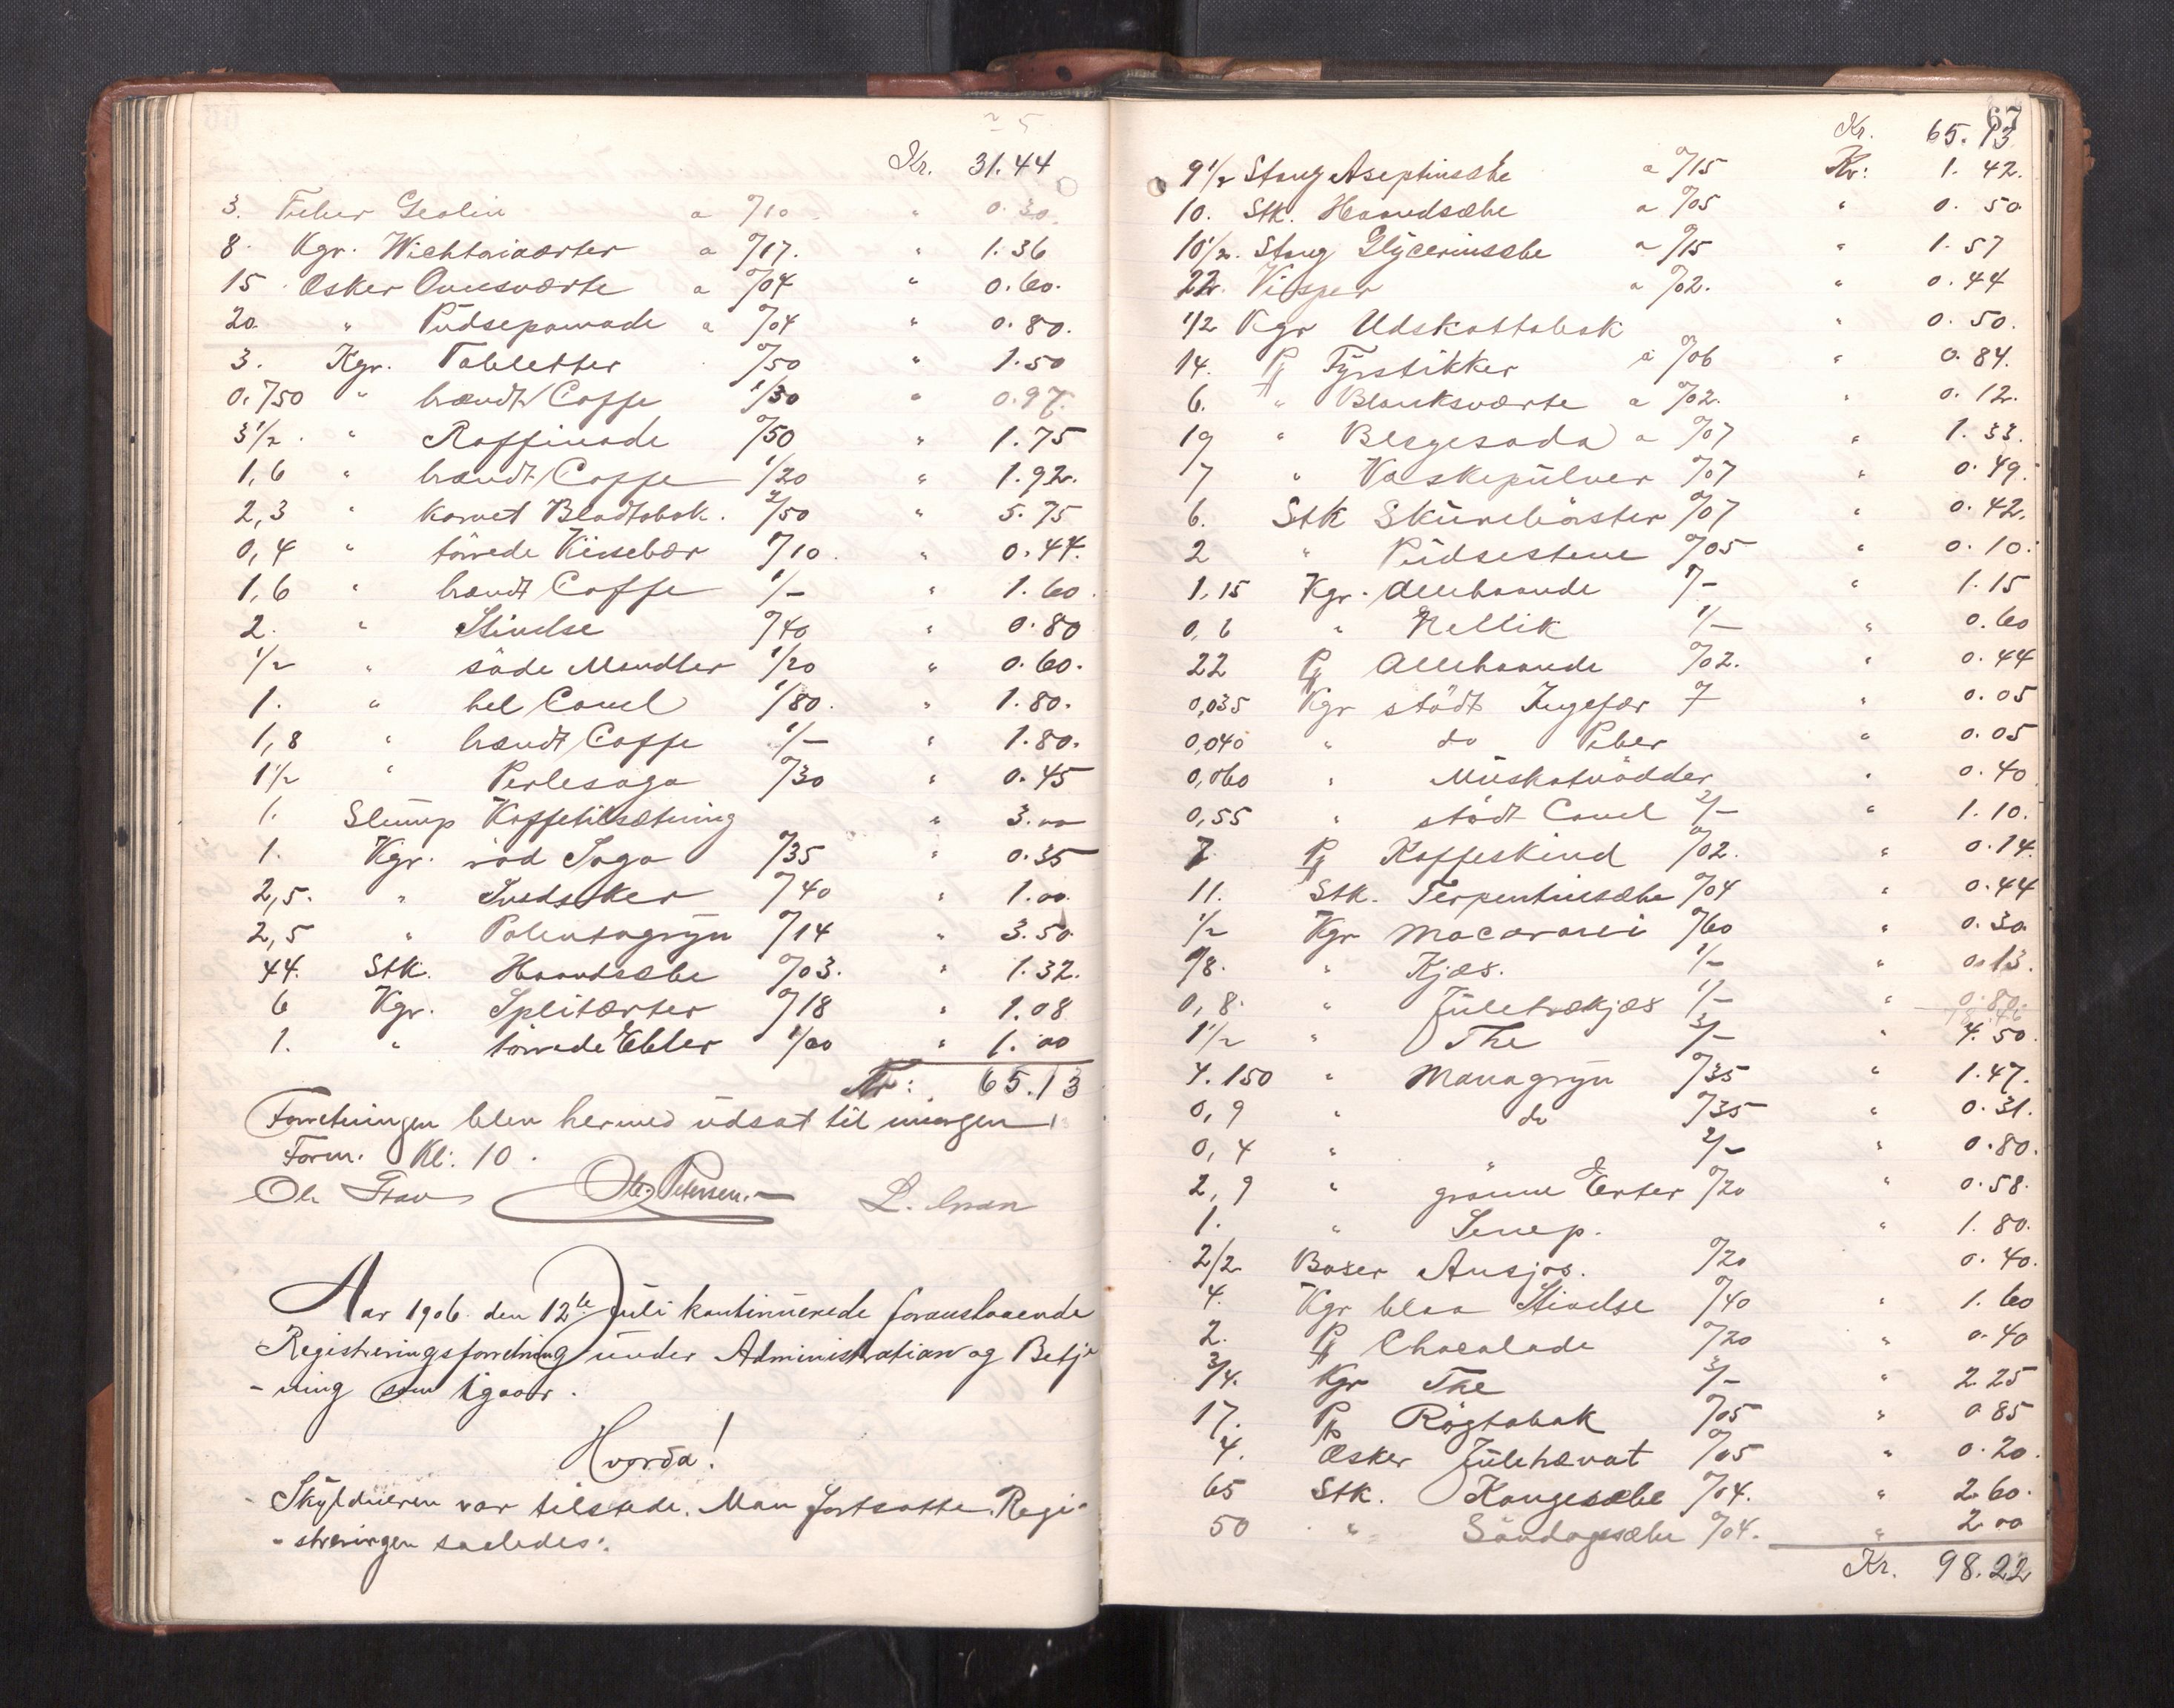 Kr. 31.44
3. Tuber Geolin a 0/10 " 0.30
8. Kgr. Wichtoriaærter a 0/17. " 1.36
15 Æsker Ovnsværte a 0/04 " 0.60.
20. " Pudsepomade a 0/04 " 0.80.
3. Kgr. Tabletter 0/50 " 1.50
0.750 " brændt Caffe 1/30 " 0.97.
3 1/2 . " Raffinade 0/50 " 1.75
1,6 " brændt Caffe 1/20 " 1.92.
2,3 " karvet Bladtobak. 2/50 " 5.75
0,4 " törrede Kirsebær 1/10. " 0.44.
1,6 " brændt Caffe 1/- " 1.60.
2. " Stivelse 0/40 " 0.80
1/2 " söde Mandler 1/20 " 0.60.
1. " hel Canel 1/80. " 1.80.
1,8 " brændt Caffe 1/- " 1.80.
1 1/2 " Perlesago 0/30 " 0.45
1. Slump Kaffetilsætning " 3.00
1. Kgr. röd Sago 0/35 " 0.35
2,5. " Svedsker 0/40 " 1.00.
2,5 " Polentagryn 0/14 " 3.50
44. Stk. Haandsæbe 0/03. " 1.32.
6 Kgr. Splitærter 0/18 " 1.08
1. " törrede Ebler 1/00 " 1.00
Kr: 65.13
Forretningen blev hermed udsat til imorgen
Form. Kl: 10.
Ole Petersen.
Aar 1906 den 12te Juli kontinuerede foranstaaende
Registreringsforretning under Administration og Betje
-ning som igaar.
Hvorda!
Skyldneren var tilstede. Man fortsatte Regi-
-streringen saaledes:
67
Kr. 65.13
9 1/2 Stang Aseptinsæbe a 0/15 Kr: 1.42.
10. Stk. Haandsæbe a 0/05 " 0.50
10 1/2. Stang Glycerinsæbe a 0/15 " 1.57
22. Visper a 0/02. " 0.44
1/2 Kgr Udskottobak " 0.50.
14. Pk Fyrstikker a 0/06 " 0.84.
6. " Blanksværte a 0/02. " 0.12.
19 " Blegesoda a 0/07 " 1.33.
7 " Vaskepulver 0/07 " 0.49.
6. Stk Skurebörster 0/07 " 0.42.
2 " Pudsestene 0/05 " 0.10.
1,15 Kgr. Allehaande 1/- " 1.15
0,6 " Nellik 1/- " 0.60
22 Pk Allehaande 0/02. " 0.44
0,035 Kgr stödt Ingefær " 0.05
0,040 " do Peber " 0.05
0,060 " Muskatnödder " 0.40
0,55 " stödt Canel 2/- " 1.10.
7 Pk Kaffeskind 0/02. " 0.14.
11. Stk. Terpentinsæbe 0/04 " 0.44
1/2 Kgr Macaroni 0/60 " 0.30
1/8. " Kjæs. 1/- " 0.13.
0,8. " Juletrækjæs 1/- " 0.80.
1 1/2 " The 3/- " 4.50.
4.150 " Managryn 0/35 " 1.47.
0,9 " do 0/35 " 0.31.
0,4 " " 2/- " 0.80.
2,9 " grönne Erter 0/20 " 0.58.
1. " Senep. " 1.80.
2/2 Boxer Ansjos. 0/20 0.40.
4. Kgr blaa Stivelse 0/40 " 1.60
2. Pk Chocolade 0/20 " 0.40
3/4. Kgr The 3/- " 2.25
17. Pk Rögtobak 0/05 " 0.85
4. Æsker 0/05 " 0.20.
65 Stk. Kongesæbe 0/04. " 2.60.
50 " Söndagssæbe 0/04. " 2.00
Kr. 98.22